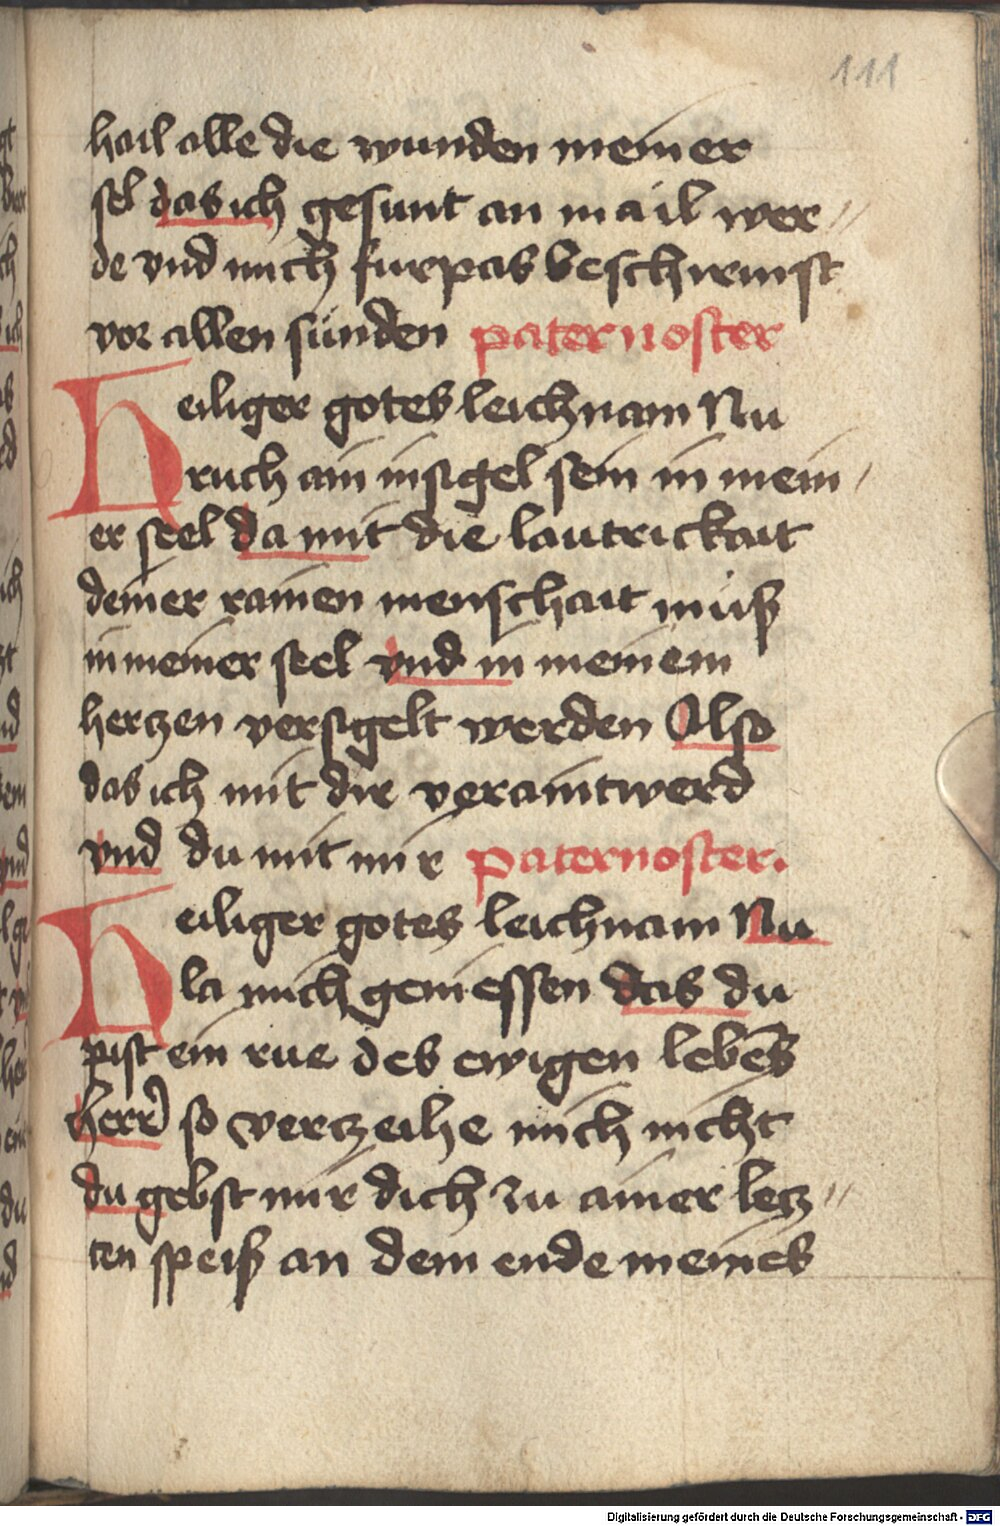 111
hail alle die wunden meiner
sel das ich gesunt an mail wer//
de vnd mich furpas beschirmst
vor allen sünden pater noster
Heiliger gotes leichnam Nu
ruch ain insigel sein in mein/
er seel da mit die lautrickait
deiner rainen menschait müß
in meiner seel vnd in meinem
hertzen versigelt werden Also
das ich mit dir veraint werd
vnd du mit mir paternoster.
Heiliger gotes leichnam Nu
la mich geniessen das du
pist ein rue des ewigen lebēs
herr so vertzeihe mich nicht
du gebst mir dich zu ainer letz//
ten speiß an dem ende meines
Digitalisierung gefördert durch die Deutsche Forschungsgemeinschaft - DFG